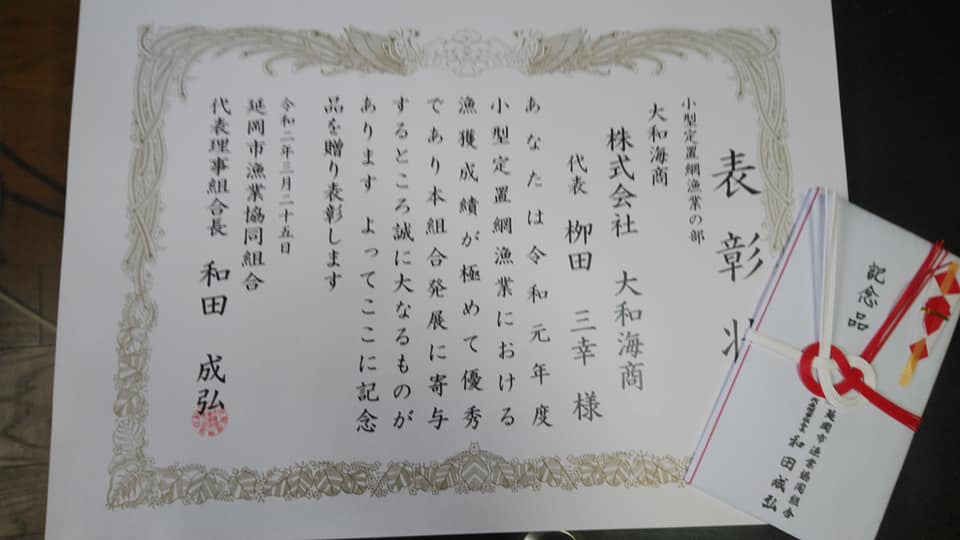 表彰状
小型定置網漁業の部
大和海商
株式会社 大和海商
代表 栁田 三幸 様
あなたは令和元年度
小型定置網漁業における
漁獲成績が極めて優秀
であり本組合発展に寄与
するところ誠に大なるものが
あります よってここに記念
品を贈り表彰します
令和二年三月二十五日
延岡市漁業協同組合
代表理事組合長 和田 成弘
記念品
延岡市漁業協同組合
代表理事組合長 和田成弘